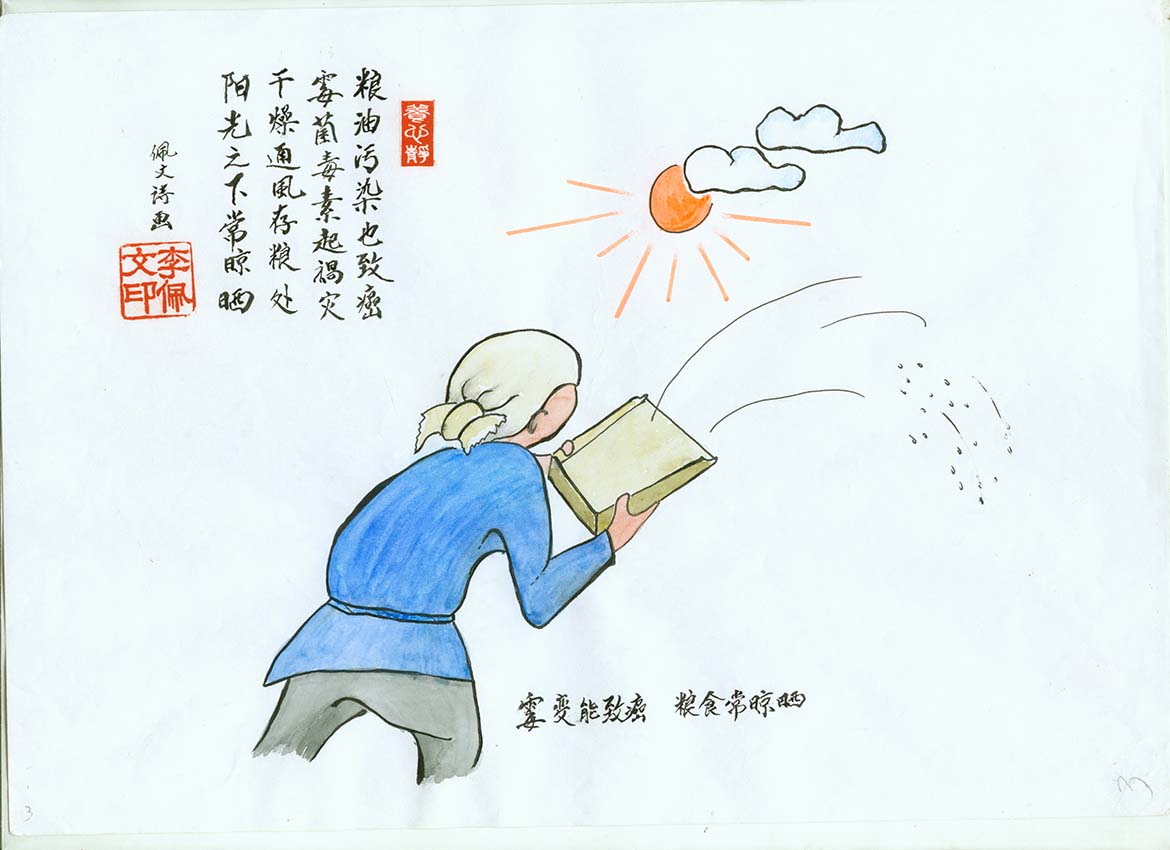 養心靜
粮油污染也致癌
霉菌毒素起禍灾
干燥通風存粮处
阳光之下常晾晒
佩文詩画
李佩文印
霉变能致癌 粮食常晾晒
3